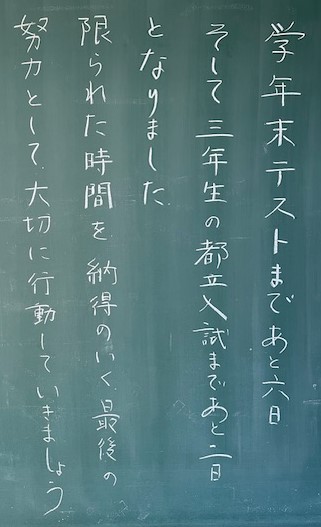 学年末テストまであと六日
そして三年生の都立入試まであと二日
となりました.
限られた時間を、納得のいく、最後の
努力として、大切に行動していきましょう